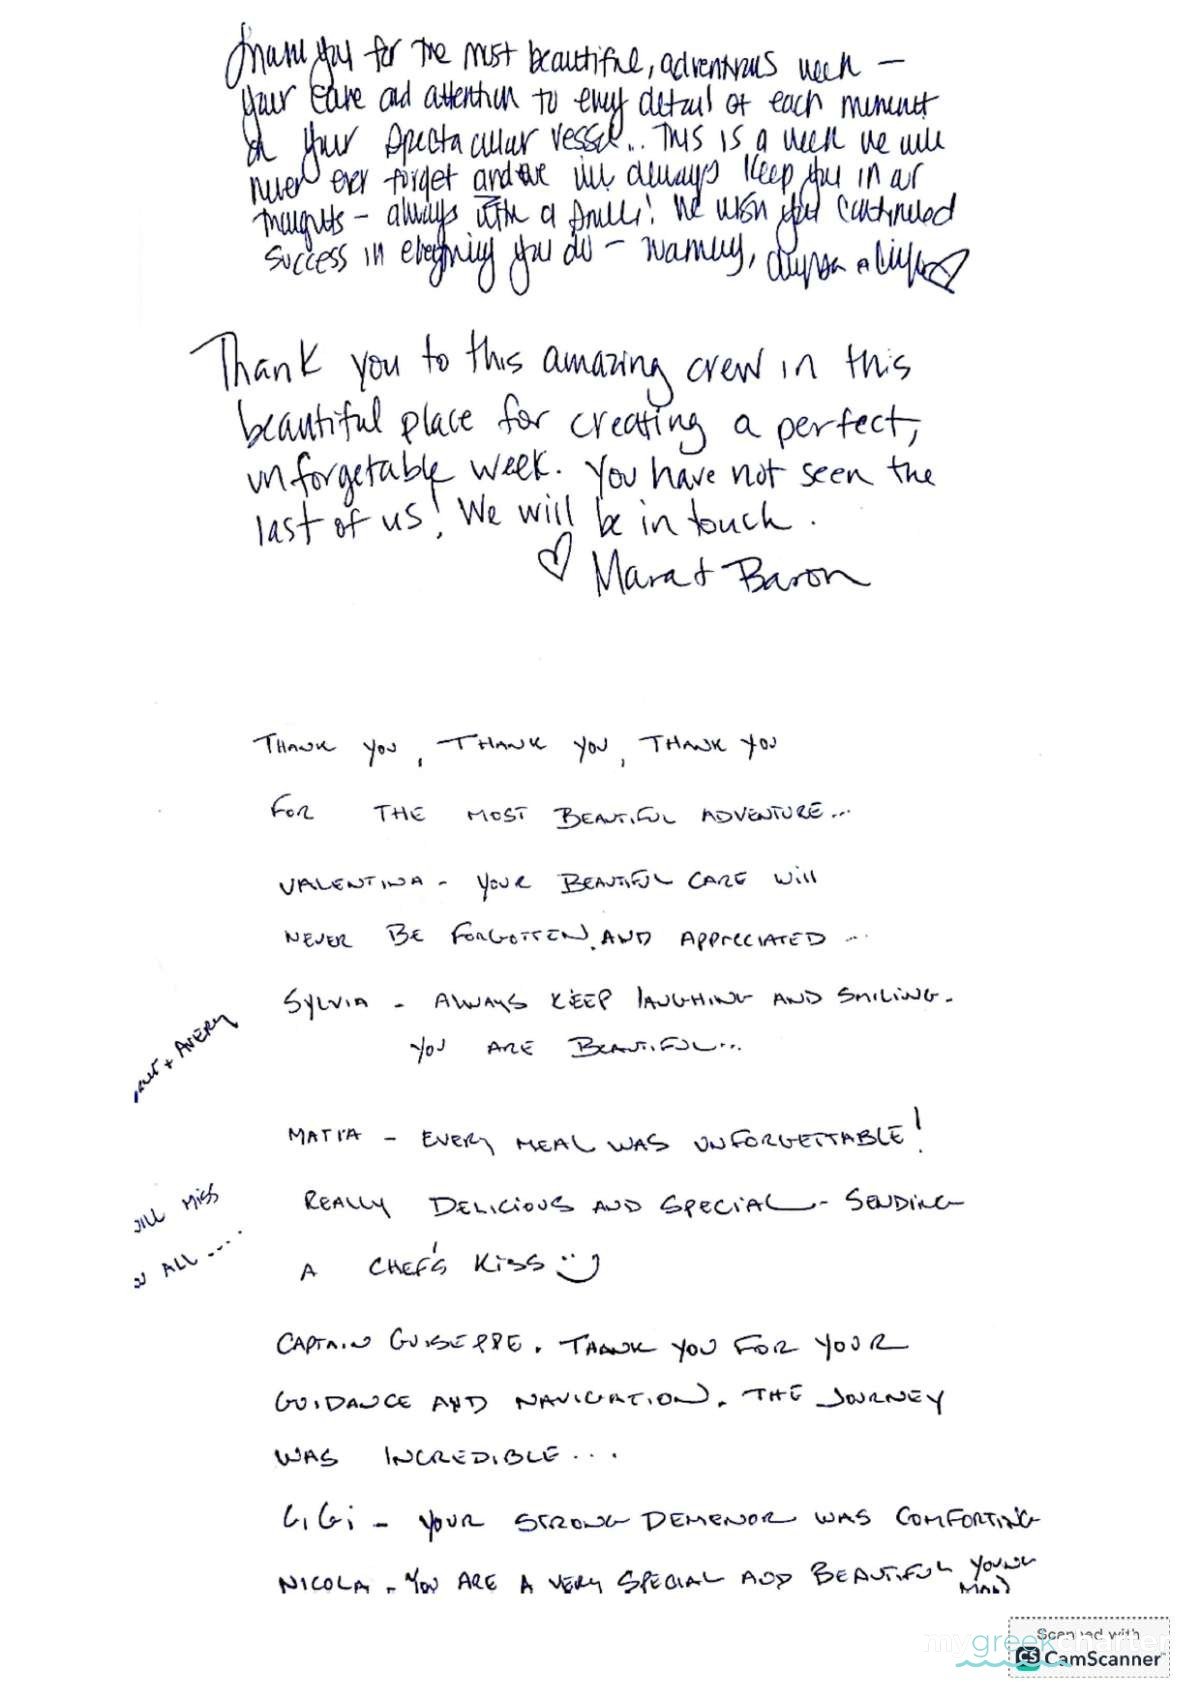 Thank you for the most beautiful, adventurous week –
your care and attention to every detail of each moment
on your spectacular vessel... This is a week we will
never ever forget and we will always keep you in our
thoughts – always with a smile! We wish you continued
success in everything you do – warmly,
Thank you to this amazing crew in this
beautiful place for creating a perfect,
unforgetable week. You have not seen the
last of us! We will be in touch.
♡ Mara + Baron
THANK YOU, THANK YOU, THANK YOU
FOR THE MOST BEAUTIFUL ADVENTURE...
VALENTINA - YOUR BEAUTIFUL CARE WILL
NEVER BE FORGOTTEN AND APPRECIATED ...
SYLVIA - ALWAYS KEEP LAUGHING AND SMILING.
YOU ARE BEAUTIFUL...
+ AVERY
MATIA - EVERY MEAL WAS UNFORGETTABLE!
REALLY DELICIOUS AND SPECIAL - SENDING
A CHEF'S KISS
MISS
ALL ....
CAPTAIN GUISEPPE. THANK YOU FOR YOUR
GUIDANCE AND NAVIGATION. THE JOURNEY
WAS INCREDIBLE...
GIGI - YOUR STRONG DEMENOR WAS COMFORTING
NICOLA - YOU ARE A VERY SPECIAL AND BEAUTIFUL YOUNG
MAN
Scanned with
mygreekcharter
CS CamScanner